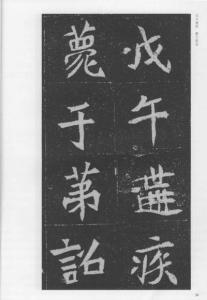 戊午遘疾
薨于苐詔